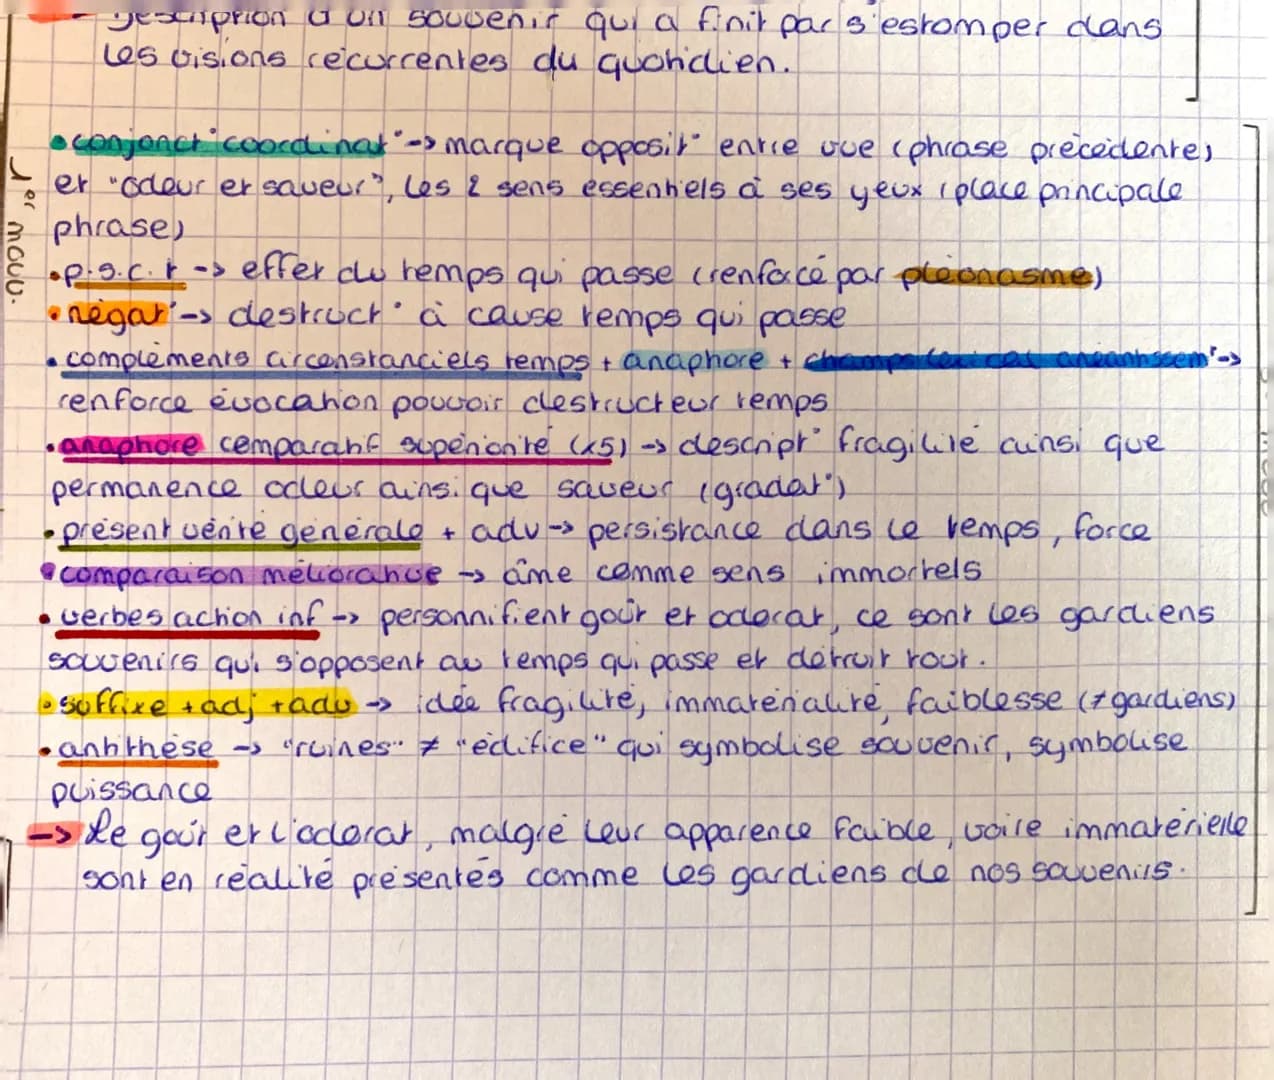 description d'un souvenir qui a finit par s'estomper dans
les visions récurrentes du quotidien.
• conjonct° coordinat° -> marque opposit° entre vue (phrase précédente)
et "odeur et saveur", les 2 sens essentiels à ses yeux (place principale
phrase)
• p.s.c.t -> effet du temps qui passe (renforcé par pléonasme)
• négat° -> destruct° à cause temps qui passe
• compléments circonstanciels temps + anaphore + champs lexical anéantissemt ->
renforce évocation pouvoir destructeur temps
• anaphore comparatif supériorité (x5) -> descript° fragilité ainsi que
permanence odeur ainsi que saveur (gradat°)
• présent vérité générale + adv -> persistance dans le temps, force
• comparaison méliorative -> âme comme sens immortels
• verbes action inf -> personnifient goût et odorat, ce sont les gardiens
souvenirs qui s'opposent au temps qui passe et détruit tout.
• suffixe + adj + adv -> idée fragilité, immatérialité, faiblesse (≠ gardiens)
• antithèse -> "ruines" ≠ "édifice" qui symbolise souvenir, symbolise
puissance
-> Le goût et l'odorat, malgré leur apparence faible, voire immatérielle
sont en réalité présentés comme les gardiens de nos souvenirs.
mouv.